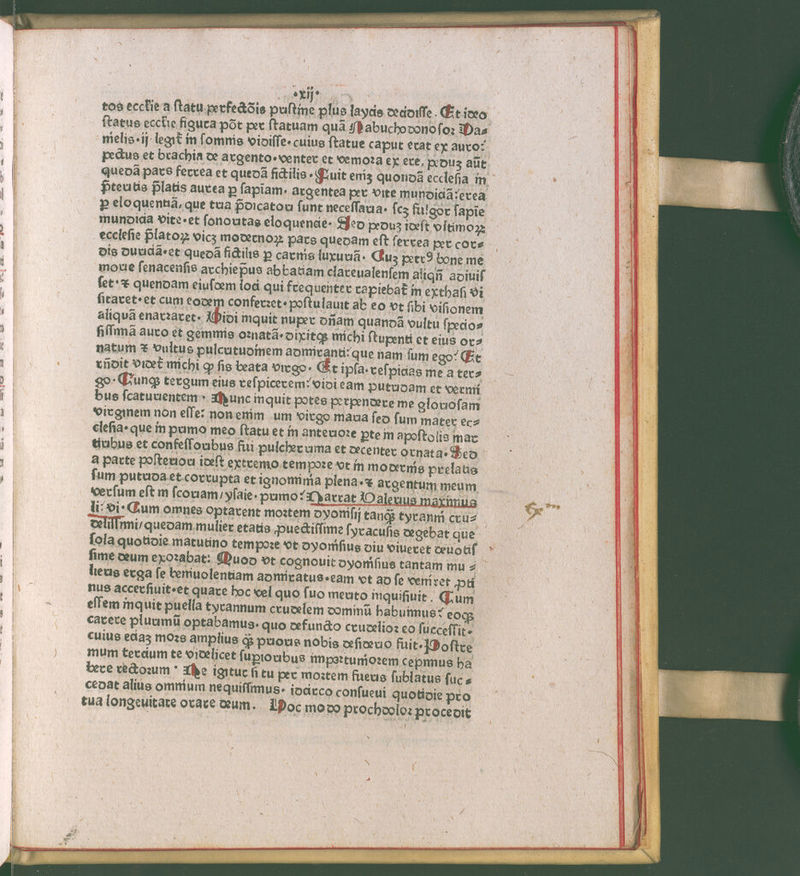 •xij•
tos eccl̄ie a statu perfectōis pristine plus laycis decidisse. Et ideo
status eccl̄ie figura pōt per statuam quā Nabuchodonosor Da⸗
nielis•ij legit̄ in somnis vidisse•cuius statue caput erat ex auro:
pectus et brachia de argento•venter et femora ex ere, peduꝫ aūt
quedā pars ferrea et quedā fictilis•Fuit eniꝫ quondā ecclesia in
p̄teritis p̄latis aurea ꝑ sapiam• argentea per vite mundiciā:erea
ꝑ eloquentiā, que tria p̄dicatori sunt necessaria• scꝫ fulgor sapie
mundicia vite•et sonoritas eloquencie• Sed peduꝫ idest vltimoꝝ
ecclesie p̄latoꝝ vicꝫ modernoꝝ pars quedam est ferrea per cor⸗
dis duriciā•et quedā fictilis ꝑ carnis luxuriā• Cuꝫ petrꝰ bone me
morie senacensis archiepūs abbatiam clareualensem aliqn̄ adiuis
set•⁊ quendam eiusdem loci qui frequenter rapiebat̄ in exthasi vi
sitaret•et cum eodem conferret•postulauit ab eo vt sibi visionem
aliquā enarraret• Uidi inquit nuper dn̄am quandā vultu specio⸗
sissimā auro et gemmis ornatā•dixitqꝫ michi stupenti et eius or⸗
natum ⁊ vultus pulcritudinem admiranti: que nam sum ego? Et
rn̄dit videt̄ michi ꝙ sis beata virgo• Et ipsa•respicias me a ter⸗
go•Cunqꝫ tergum eius respicerem:vidi eam putridam et vermi
bus scaturientem • Nunc inquit potes perpendere me gloriosam
virginem non esse: non enim um virgo maria sed sum mater ec⸗
clesia•que in primo meo statu et in anteriore ꝑte in apostolis mar
tiribus et confessoribus fui pulcherrima et decenter ornata•Sed
a parte posteriori idest extremo tempore vt in modernis prelatis
sum putrida et corrupta et ignominia plena•⁊ argentum meum
versum est in scoriam/ysaie•primo:Narrat Ualerius maximus
li: vi•Cum omnes optarent mortem dyonisij tanqꝫ tyranni cru⸗
delissimi/quedam mulier etatis ꝓuectissime syracusis degebat que
sola quotidie matutino tempore vt dyonisius diu viueret deuotis
sime deum exorabat: Quod vt cognouit dyonisius tantam mu ⸗
lieris erga se beniuolentiam admiratus•eam vt ad se veniret ꝓti
nus accersiuit•et quare hoc vel quo suo merito inquisiuit. Cum
essem inquit puella tyrannum crudelem dominū habuimus: eoqꝫ
carere plurimū optabamus• quo defuncto crudelior eo successit•
cuius etiaꝫ mors amplius qꝫ prioris nobis desiderio fuit•Postre
mum tercium te videlicet superioribus importuniorem cepimus ha
bere rectorum • Ne igitur si tu per mortem fueris sublatus suc⸗
cedat alius omnium nequissimus• idcirco consueui quotidie pro
tua longeuitate orare deum. Hoc modo prochdolor procedit
Exm